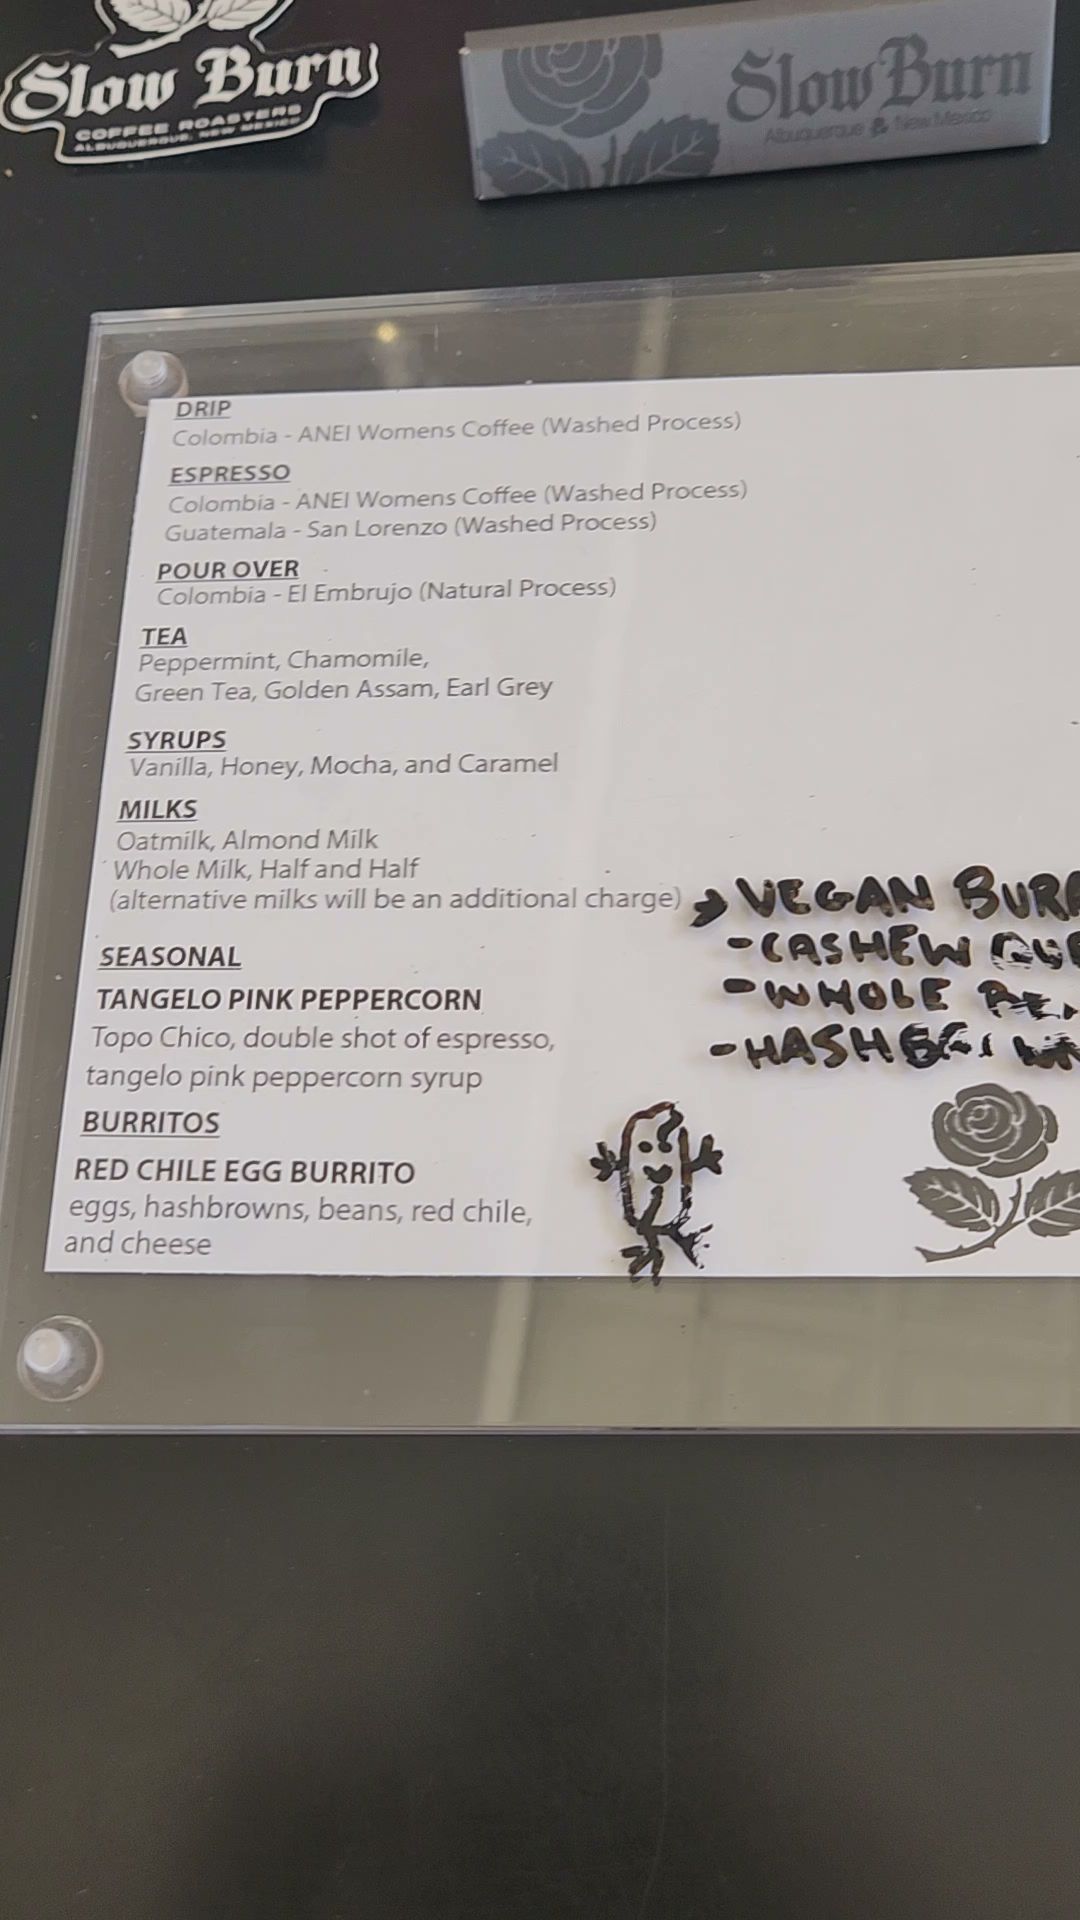 Slow Burn
COFFEE ROASTERS
ALBUQUERQUE, NEW MEXICO
Slow Burn
Albuquerque & New Mexico
DRIP
Colombia - ANEI Womens Coffee (Washed Process)
ESPRESSO
Colombia - ANEI Womens Coffee (Washed Process)
Guatemala - San Lorenzo (Washed Process)
POUR OVER
Colombia - El Embrujo (Natural Process)
TEA
Peppermint, Chamomile,
Green Tea, Golden Assam, Earl Grey
SYRUPS
Vanilla, Honey, Mocha, and Caramel
MILKS
Oatmilk, Almond Milk
Whole Milk, Half and Half
(alternative milks will be an additional charge)
VEGAN
- CASHEW
- WHOLE
- HASH
SEASONAL
TANGELO PINK PEPPERCORN
Topo Chico, double shot of espresso,
tangelo pink peppercorn syrup
BURRITOS
RED CHILE EGG BURRITO
eggs, hashbrowns, beans, red chile,
and cheese